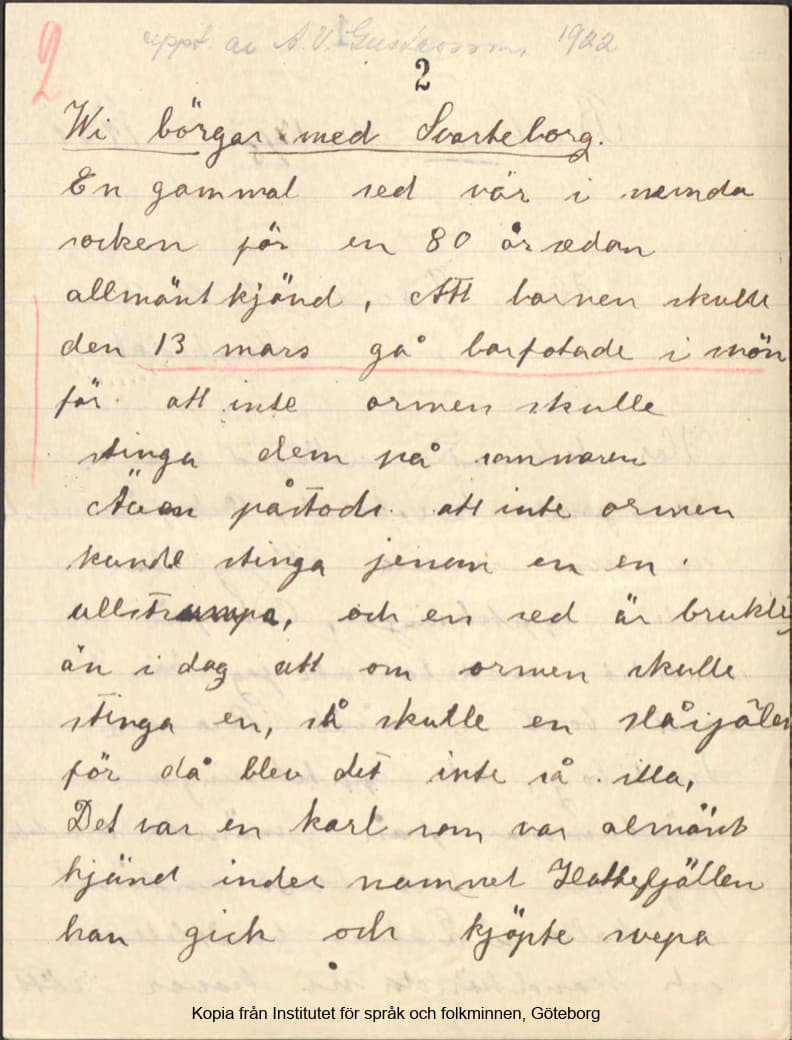 2
uppt. av A. V. Gustavsson, 1922
2
Wi börgar med Svarteborg.
En gammal sed vär i nemnda
socken för en 80 år sedan
allmänt kjänd, Att barnen skulle
den 13 mars gå barfotade i mön
för att inte ormen skulle
stinga dem på sommaren
Även påstods att inte ormen
kunde stinga jenom en en
ullstrumpa, och en sed är brukli
än i dag att om ormen skulle
stinga en, så skulle en slå ijälen
för då blev det inte så illa,
Det var en karl som var almänt
kjänd inder namnet Hattefjällen
han gick och kjöpte svepa
Kopia från Institutet för språk och folkminnen, Göteborg